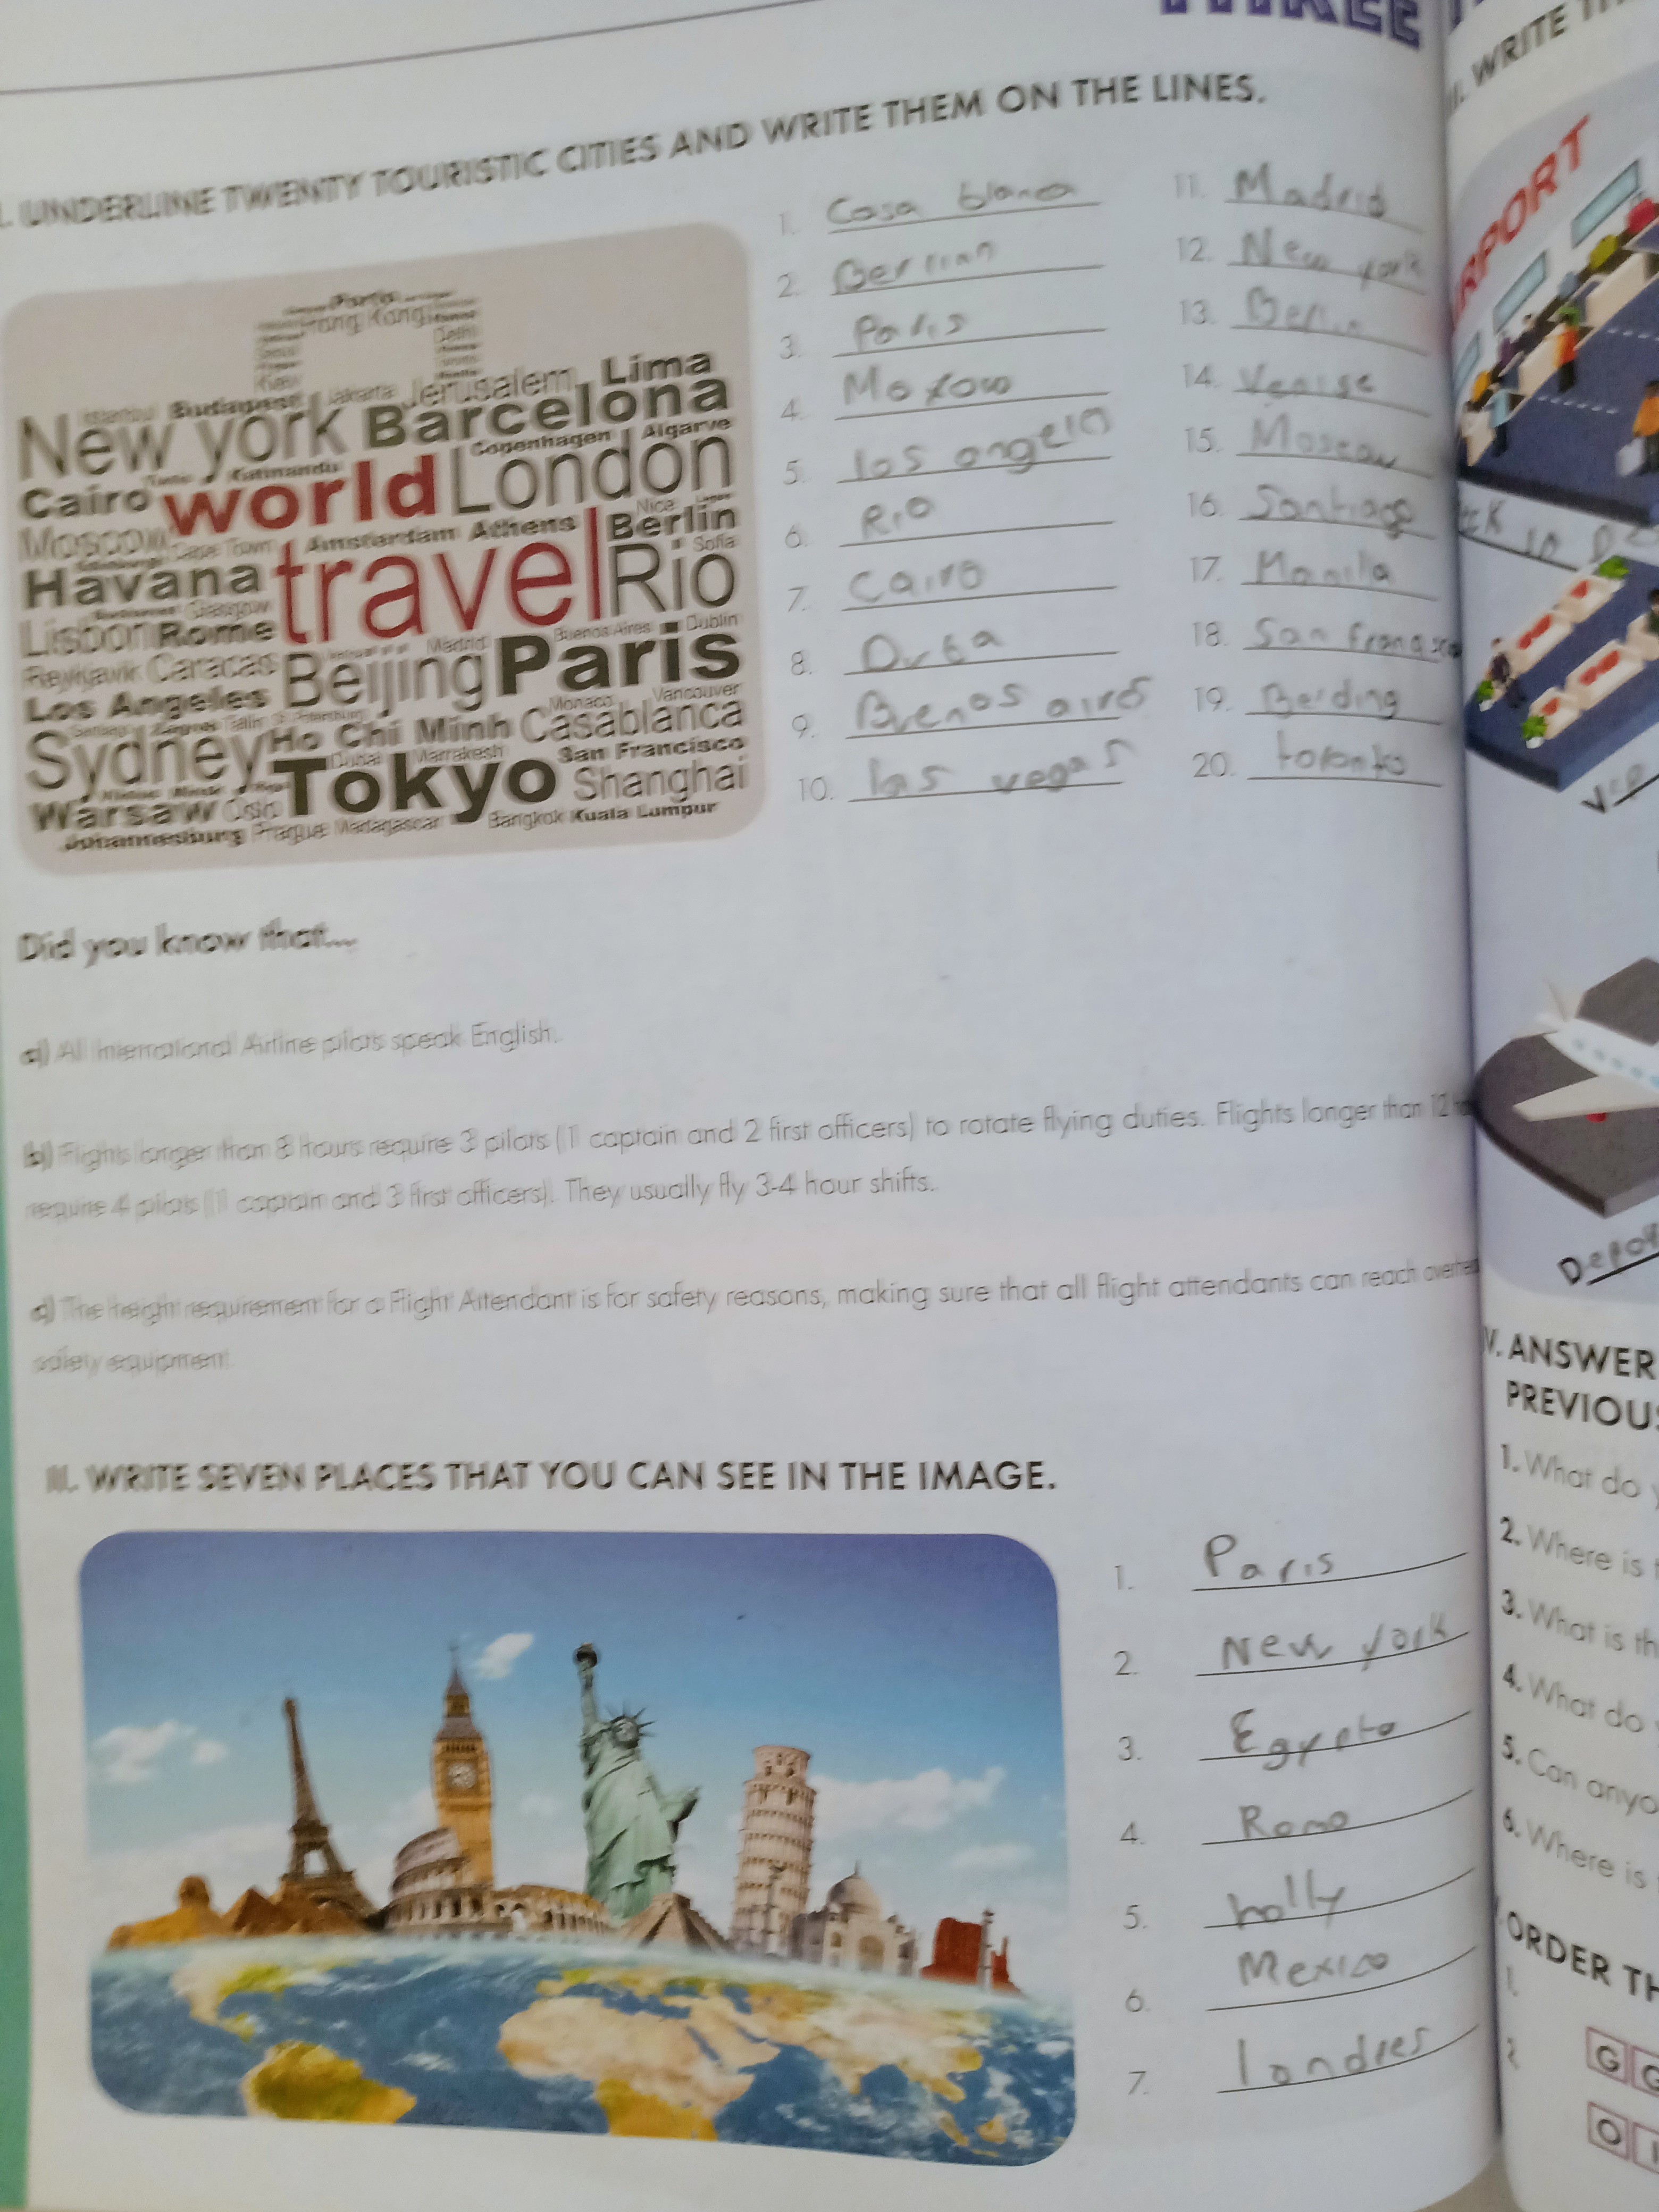 THREE
I. UNDERLINE TWENTY TOURISTIC CITIES AND WRITE THEM ON THE LINES.
Porto
Hong Kong
Delhi
Kiev
Istanbul Budapest Jakarta Jerusalem Lima
New york Barcelona
Katmandu Copenhagen Algarve
Cairo world London
Nice
Moscow Cape Town Amsterdam Athens Berlin
Sofia
Havana travel Rio
Glasgow
Lisbon Rome Madrid Buenos Aires Dublin
Reykjavik Caracas Beijing Paris
Los Angeles Monaco Vancouver
Tallin St. Petersburg
Sydney Ho Chi Minh Casablanca
Dubai Marrakesh San Francisco
Tokyo Shanghai
Warsaw Oslo
Johannesburg Prague Madagascar Bangkok Kuala Lumpur
1. Casa blanca
2. Berlian
3. Paris
4. Moxow
5. los angels
6. Rio
7. Cairo
8. Duba
9. Buenos aires
10. las vegas
11. Madrid
12. New york
13. Berlin
14. Venise
15. Moscow
16. Santiago
17. Manila
18. San
19. Beiding
20. toronto
Did you know that...
a) All International Airline pilots speak English.
b) Flights longer than 8 hours require 3 pilots (1 captain and 2 first officers) to rotate flying duties. Flights longer than 12
require 4 pilots (1 captain and 3 first officers). They usually fly 3-4 hour shifts.
c) The height requirement for a Flight Attendant is for safety reasons, making sure that all flight attendants can reach
safety equipment.
II. WRITE SEVEN PLACES THAT YOU CAN SEE IN THE IMAGE.
1. Paris
2. New york
3. Egypto
4. Roma
5. holly
6. Mexico
7. londres
WRITE
RPORT
V. ANSWER
PREVIOUS
1. What do
2. Where is
3. What is
4. What do
5. Can
6. Where is
ORDER
1.
2.
G G
O